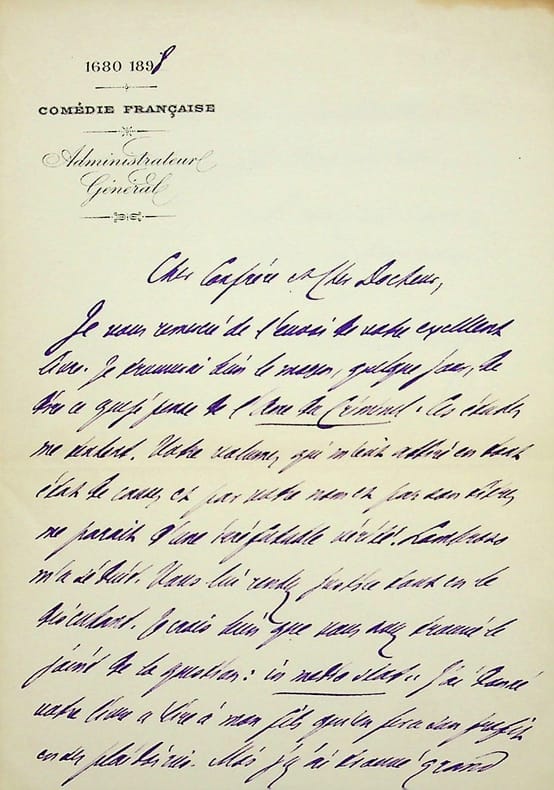 1680 1898
COMÉDIE FRANÇAISE
Administrateur
Général
Cher Confrère et Cher Docteur,
Je vous remercie de l'envoi de votre excellent
livre. Je trouverai bien le moyen, quelque jour, de
dire ce que je pense de l'Ame du Criminel. Ces études
me tentent. Votre volume, qui m'eût attiré en tout
état de cause et par votre nom et par son titre,
me paraît d'une irréfutable vérité. Lombroso
m'a séduit. Vous lui rendez justice tout en le
discutant. Je crois bien que vous avez trouvé le
joint de la question: in medio stat. J'ai donné
votre livre à lire à mon fils qui en fera son profit
en ses plaidoiries. Moi j'y ai trouvé grand